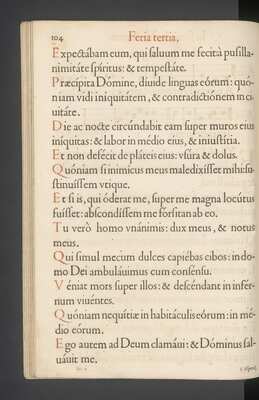 104 Feria tertia,
Expectábam eum, qui saluum me fecit à pusilla-
nimitáte spíritus: & tempestáte.
Præcipita Dómine, diuide linguas eórum: quó-
niam vidi iniquitátem, & contradictiónem in ci-
uitáte.
Die ac nocte circúndabit eam super muros eius
iníquitas: & labor in médio eius, & iniustítia.
Et non defécit de pláteis eius: vsúra & dolus.
Quóniam si inimícus meus maledixísset mihi: su-
stinuíssem vtique.
Et si is, qui óderat me, super me magna locútus
fuísset: abscondíssem me fórsitan ab eo.
Tu verò homo vnánimis: dux meus, & notus
meus.
Qui simul mecum dulces capiébas cibos: in do-
mo Dei ambuláuimus cum consénsu.
Véniat mors super illos: & descéndant in infér-
num viuéntes.
Quóniam nequítiæ in habitáculis eórum: in mé-
dio eórum.
Ego autem ad Deum clamáui: & Dóminus sal-
uáuit me.